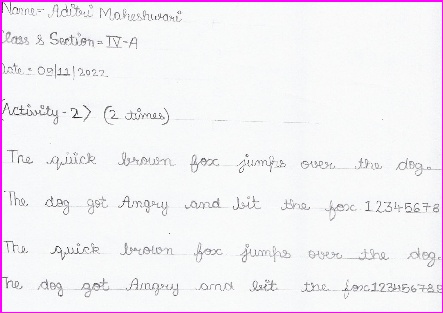 Name - Aditri Maheshwari
Class & Section = IV-A
Date = 09/11/2022
Activity - 2> (2 times)
The quick brown fox jumps over the dog.
The dog got Angry and bit the fox 12345678
The quick brown fox jumps over the dog.
The dog got Angry and bit the fox 123456789